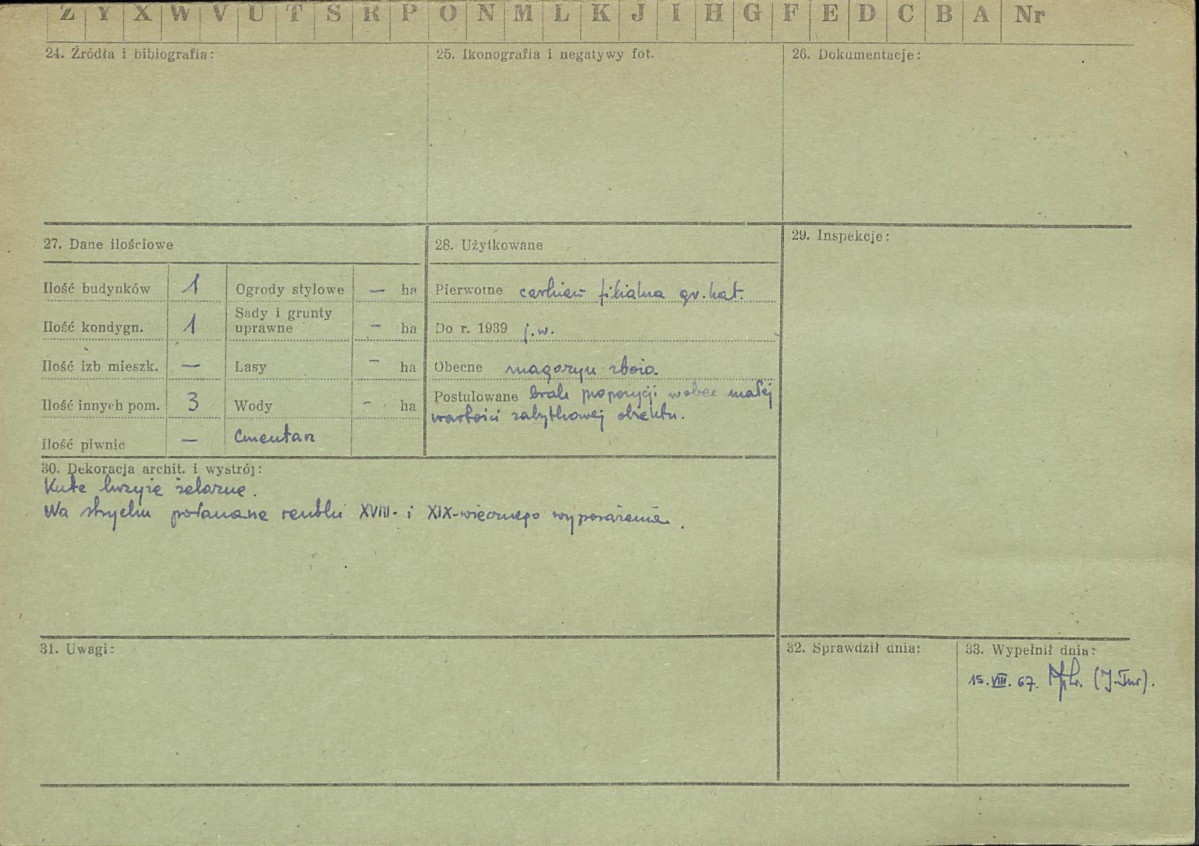 Z Y X W V U T S R P O N M L K J I H G F E D C B A Nr
24. Źródła i bibiografia:
25. Ikonografia i negatywy fot.
26. Dokumentacje:
27. Dane ilościowe
Ilość budynków 1 Ogrody stylowe — ha
Ilość kondygn. 1 Sady i grunty uprawne — ha
Ilość izb mieszk. — Lasy — ha
Ilość innych pom. 3 Wody — ha
Ilość piwnic — Cmentarz
28. Użytkowane
Pierwotne cerkiew filialna gr. kat.
Do r. 1939 j.w.
Obecne magazyn zboża.
Postulowane brak propozycji wobec małej
wartości zabytkowej obiektu.
29. Inspekcje:
30. Dekoracja archit. i wystrój:
Kute krzyże żelazne.
Na strychu połamane resztki XVIII- i XIX-wiecznego wyposażenia.
31. Uwagi:
32. Sprawdził dnia:
33. Wypełnił dnia:
15.VIII.67.